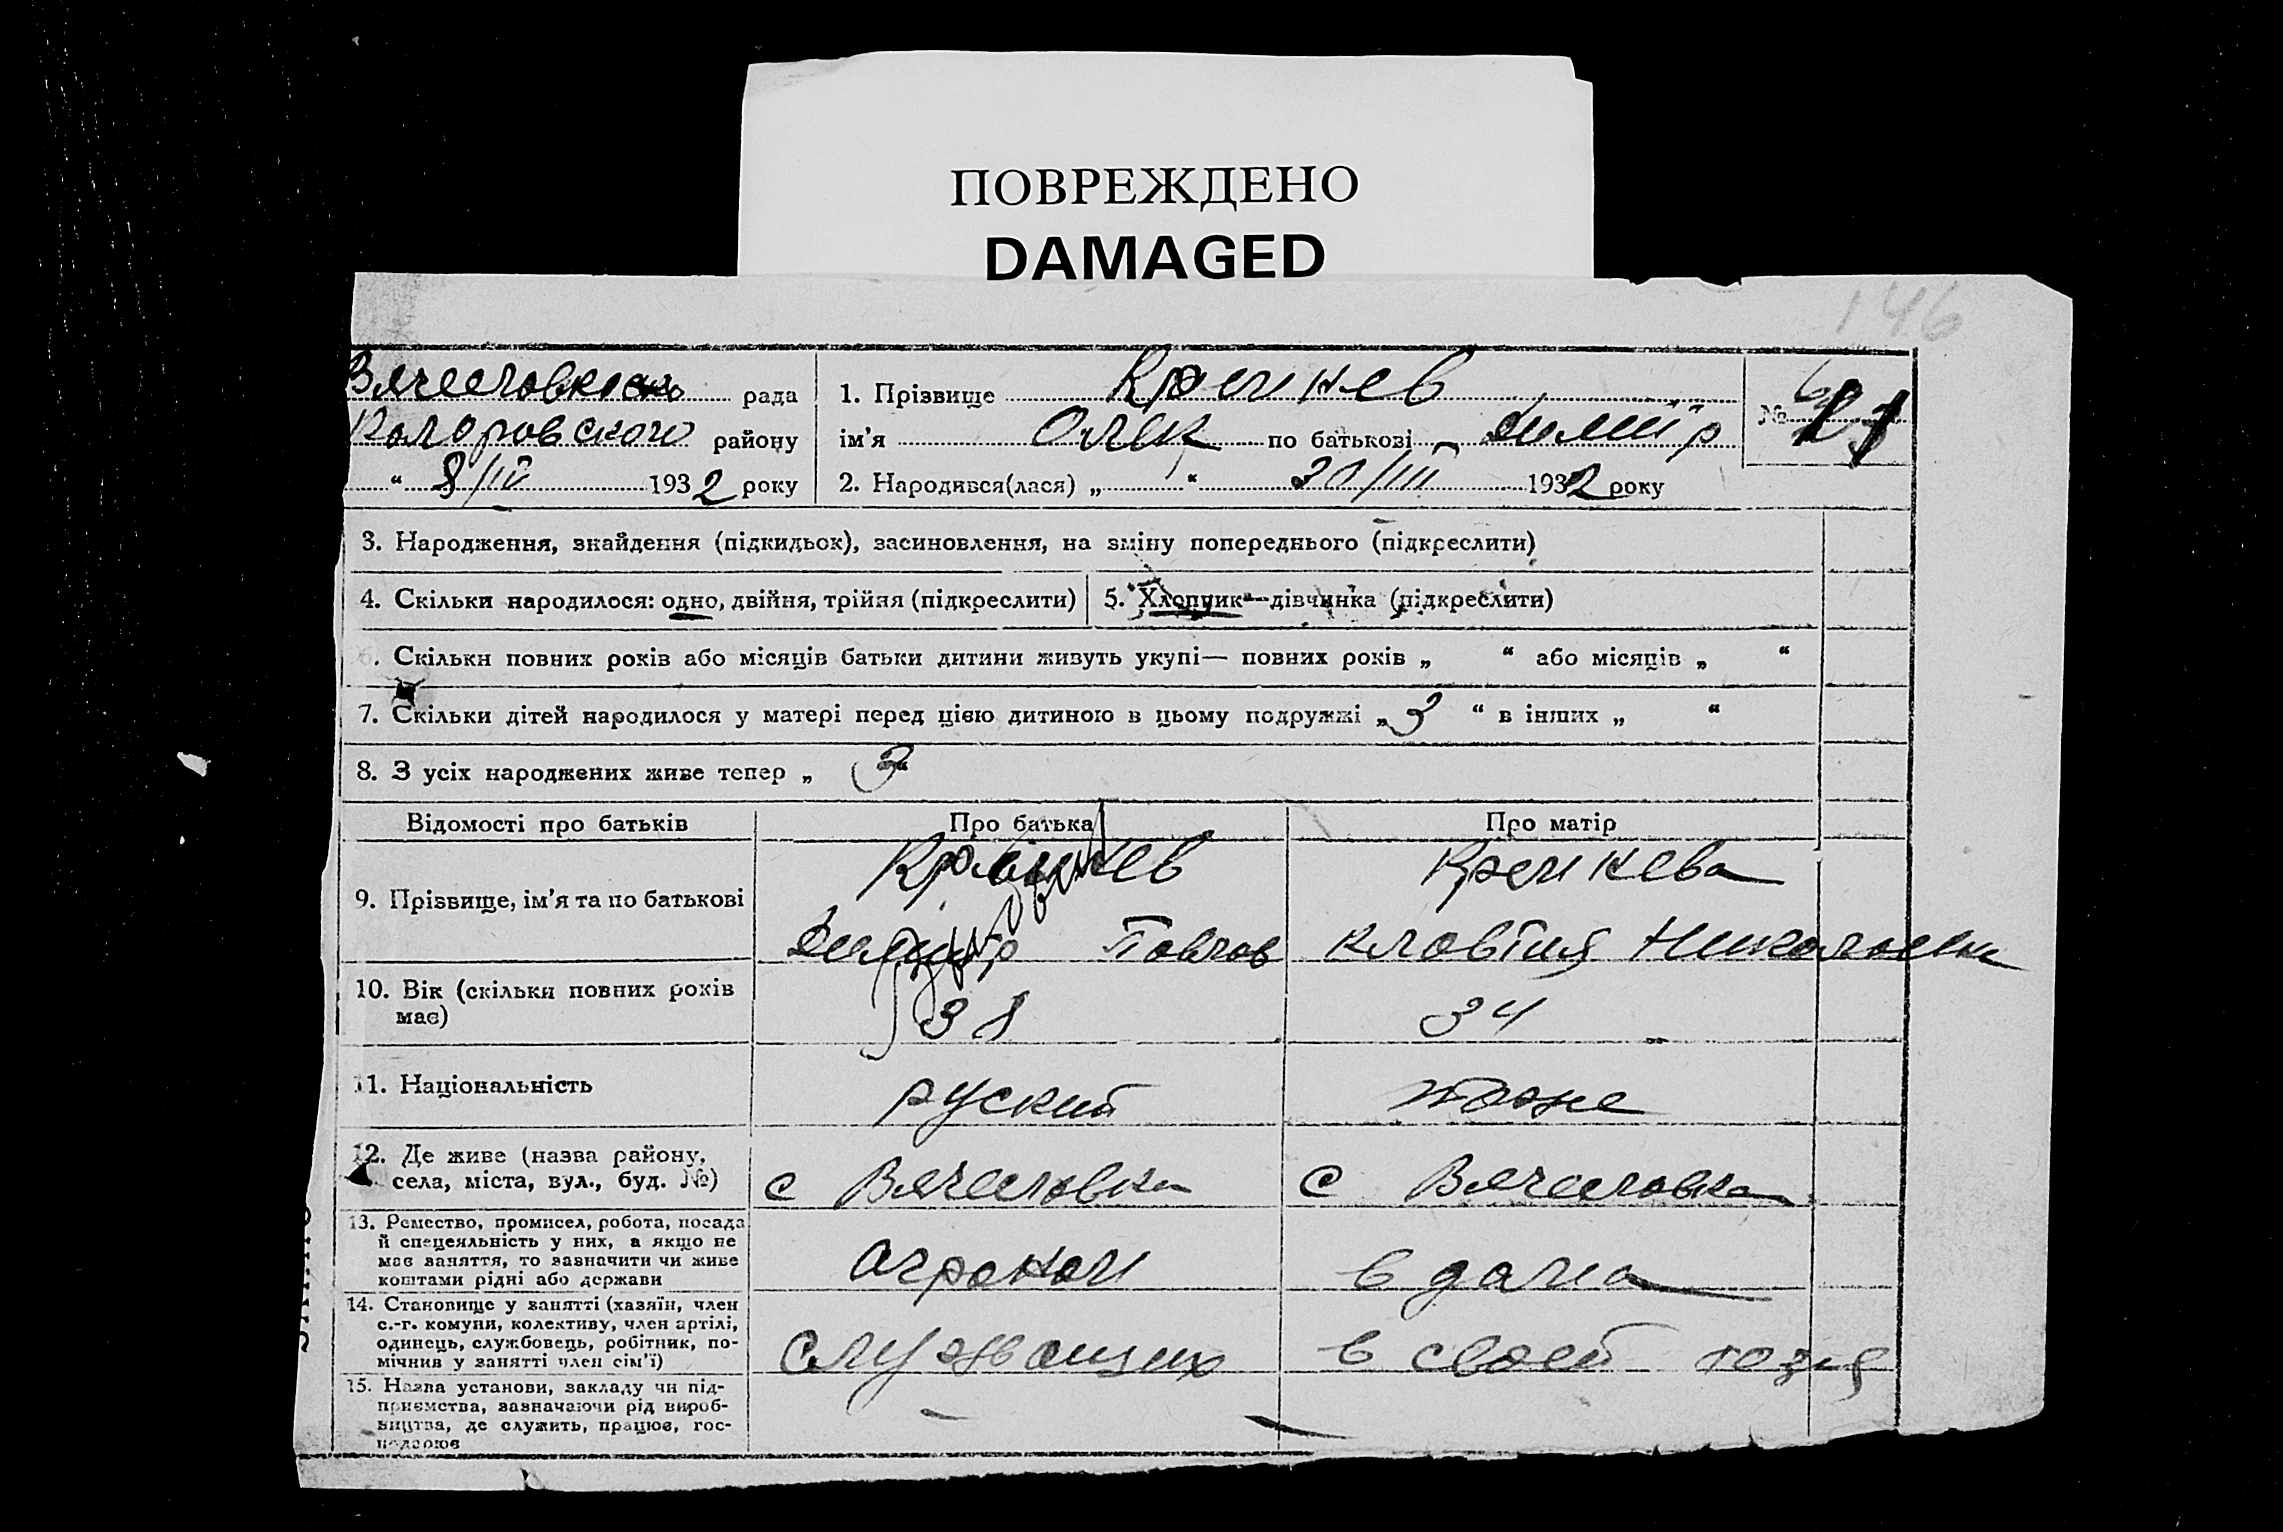 ПОВРЕЖДЕНО
DAMAGED
146
рада
району
“ 8/IV 1932 року
1. Прізвище
ім’я Олек по батькові Димитр
2. Народився(лася) „ “ 20/III 1932 року
№ 21
3. Народження, знайдення (підкидьок), засиновлення, на зміну попереднього (підкреслити)
4. Скільки народилося: одно, двійня, трійня (підкреслити)
5. Хлопчик—дівчинка (підкреслити)
6. Скільки повних років або місяців батьки дитини живуть укупі— повних років „ “ або місяців „ “
7. Скільки дітей народилося у матері перед цією дитиною в цьому подружжі „ 3 “ в інших „ “
8. З усіх народжених живе тепер „ 3 “
Відомості про батьків
Про батька
Про матір
9. Прізвище, ім’я та по батькові
10. Вік (скільки повних років
має)
38
34
11. Національність
руский
тоже
12. Де живе (назва району,
села, міста, вул., буд. №)
с Вячеславка
с Вячеславка
13. Ремество, промисел, робота, посада
й спецеяльність у них, а якщо не
має заняття, то зазначити чи живе
коштами рідні або держави
агроном
в дома
14. Становище у занятті (хазяїн, член
с.-г. комуни, колективу, член артілі,
одинець, службовець, робітник, по-
мічник у занятті член сім’ї)
служащих
в своей
15. Назва установи, закладу чи під-
приємства, зазначаючи рід вироб-
ництва, де служить, працює, гос-
подарює